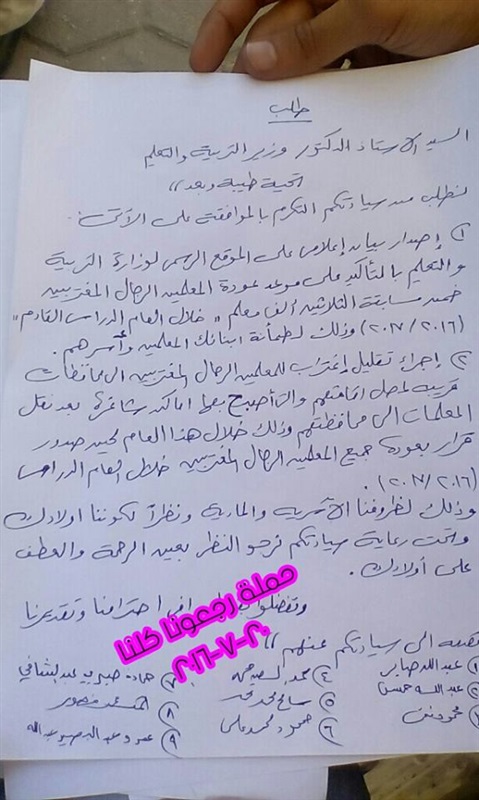 طلب
السيد الأستاذ الدكتور وزير التربية والتعليم
تحية طيبة وبعد ،،
نطلب من سيادتكم التكرم بالموافقة على الآتى :
① إصدار بيان إعلامى على الموقع الرسمى لوزارة التربية
والتعليم بالتأكيد على موعد عودة المعلمين الرجال المغتربين
ضمن مسابقة الثلاثين ألف معلم " خلال العام الدراسى القادم "
(٢٠١٦/٢٠١٧) وذلك لطمأنة ابنائك المعلمين وأسرهم .
② إجراء تقليل إغتراب للمعلمين الرجال المغتربين الى محافظات
قريبة لمحل اقامتهم والتى أصبح بها اماكن شاغرة بعد نقل
المعلمات الى محافظتهم وذلك خلال هذا العام لحين صدور
قرار بعودة جميع المعلمين الرجال المغتربين خلال العام الدراسى
(٢٠١٦/٢٠١٧) .
وذلك لظروفنا الأسرية والمادية ونظراً لكوننا اولادك
وتحت رعاية سيادتكم نرجو النظر بعين الرحمة والعطف
على أولادك .
وتفضلوا احترامنا وتقديرنا
حملة رجعونا كلنا
٢٠-٧-٢٠١٦
الى سيادتكم عنهم ،،
① عبدالله صابر
② عبدالله حسن
③ محمود
④ محمد السيد
⑤ سامح محمد
⑥ محمود محمد على
⑦ حمادة عبدالشافي
⑧ احمد محمد منصور
⑨ عمرو عبدالله